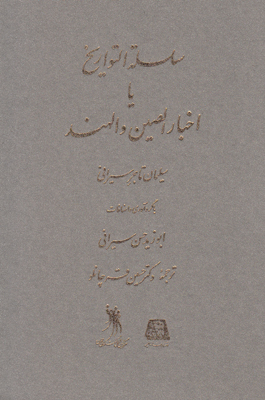 سلسلة التواریخ
یا
اخبار الصین و الهند
سلیمان تاجر سیرافی
گردآوری و اضافات
ابوزید حسن سیرافی
ترجمه دکتر حسین قره چانلو